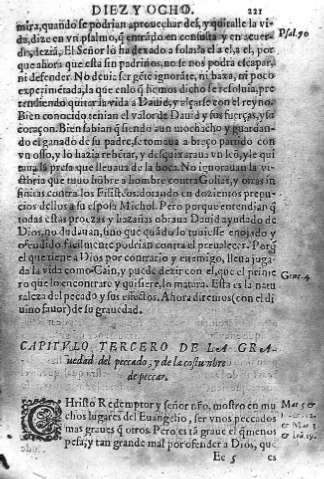 DIEZ Y OCHO. 221
mira, quando se podrian aprouechar del, y quitalle la vi-
da, dize en vn psalmo, q̃ entrãdo en consulta y en acuer-
do, deziã, El Señor lo ha dexado a solas a el a, el, por
que ahora que esta sin padrinos, no se nos podra escapar,
ni defender. No deuia ser gẽte ignorãte, ni baxa, ni poco
experimẽtada, la que en lo q̃ hemos dicho se resoluia, pre-
tendiendo quitar la vida a Dauid, y alçarse con el reyno.
Bien conocido tenian el valor de Dauid y sus fuerças, y su
coraçon. Bien sabian q̃ siendo aun mochacho y guardan-
do el ganado de su padre, se tomaua a braço partido con
vn osso, y lo hazia rebẽtar, y desquixaraua vn leõ, y le qui
taua la presa que lleuaua de la boca. No ignorauan la vi-
ctoria que tuuo hõbre a hombre contra Golias, y otras in
signias contra los Filisteos, dotando en dozientos prepu-
cios dellos a su esposa Michol. Pero porque entendian q̃
todas estas proezas y hazañas obraua Dauid ayudado de
Dios, no dudauan, sino que quãdo lo tuuiesse enojado y
ofendido facilmente podrian contra el preualecer. Porq̃
el que tiene a Dios por contrario y enemigo, lleua juga-
da la vida como Cain, y puede dezir con el, que el prime
ro que lo encontrare y quisiere, lo matara. Esta es la natu
raleza del pecado y sus efectos. Ahora diremos (con el di
uino fauor) de su grauedad.
Psal. 70
Gene. 4
CAPITVLO TERCERO DE LA GRA-
uedad del peccado, y de la costumbre
de peccar.
CHristo Redemptor y señor nr̃o, mostro en mu
chos lugares del Euangelio, ser vnos peccados
mas graues q̃ otros. Pero es tã graue el q̃ menos
pesa, y tan grande mal por ofender a Dios, que
Ee 5 es